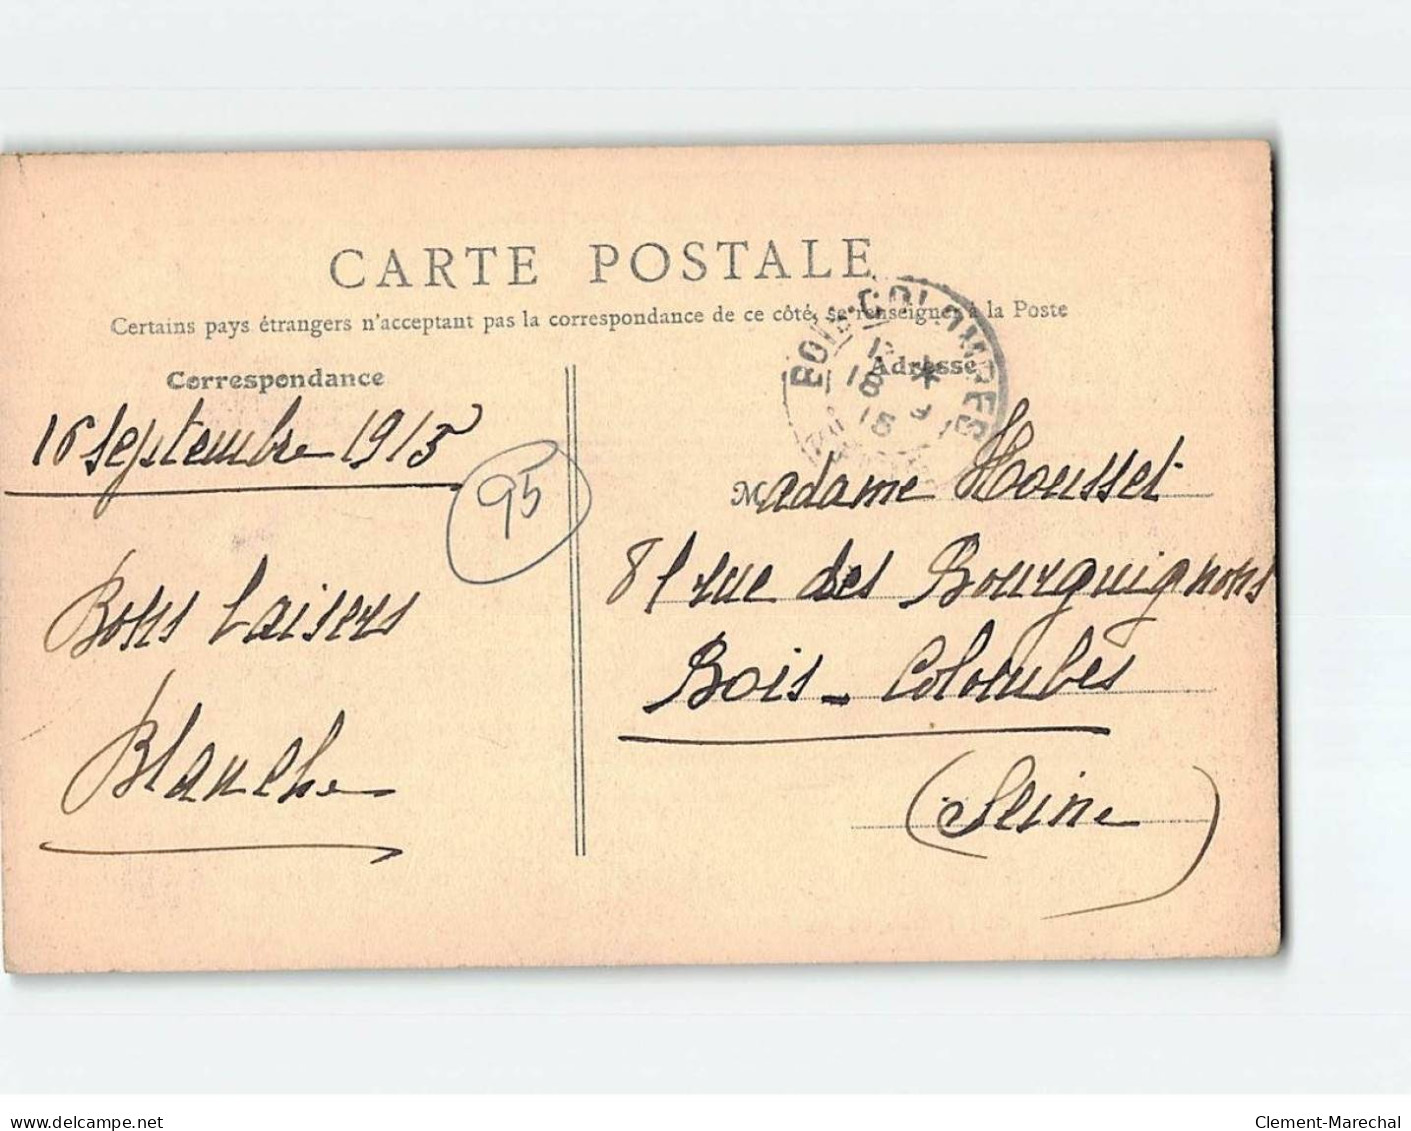 CARTE POSTALE
Certains pays étrangers n'acceptant pas la correspondance de ce côté, se renseigner à la Poste
Correspondance
Adresse
BOIS-COLOMBES
18 9
15
16 septembre 1915
95
Bons baisers
Blanche
Madame Housset
81 rue des Bourguignons
Bois-Colombes
(Seine)
www.delcampe.net
Clement-Marechal